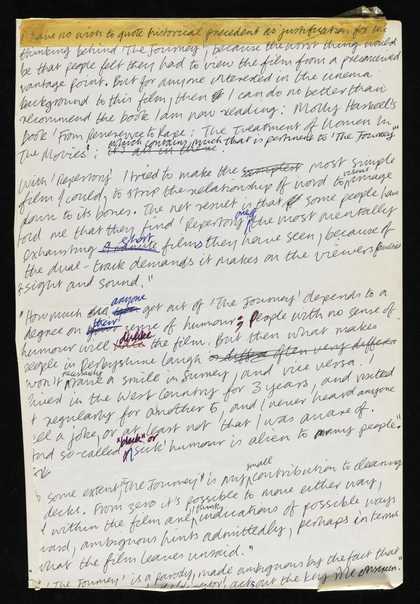 I have no wish to quote historical precedent as justification for
thinking behind 'The Journey', because the worst thing would
be that people felt they had to view the film from a preconceived
vantage point. But for anyone interested in the cinema
background to this film, then I can do no better than
recommend the book I am now reading: Molly Haskell's
book 'From Reverence to Rape: The Treatment of Women In
The Movies': which contains much that is pertinent to 'The Journey'
With 'Repertory' I tried to make the simplest most simple
film I could, to strip the relationship of word to image
down to its bones. The net result is that some people have
told me that they find 'Repertory' one of the most mentally
exhausting short films they have seen, because of
the dual-track demands it makes on the viewers
sight and sound."
"How much anyone get out of 'The Journey' depends to a
degree on their sense of humour; people with no sense of
humour will dislike the film. But then what makes
people in Derbyshire laugh
won't necessarily raise a smile in Surrey, and vice versa. I
lived in the West Country for 3 years, and visited
it regularly for another 6, and I never heard anyone
tell a joke, or at least not that I was aware of.
And so-called "black" or 'sick' humour is alien to many people."
To some extent, 'The Journey' is my small contribution to cleaning
decks. From zero it's possible to move either way,
within the film are, I think, indications of possible ways
forward, ambiguous hints admittedly, perhaps in terms
what the film leaves unsaid."
'The Journey' is a parody, made ambiguous by the fact that
acts out the key